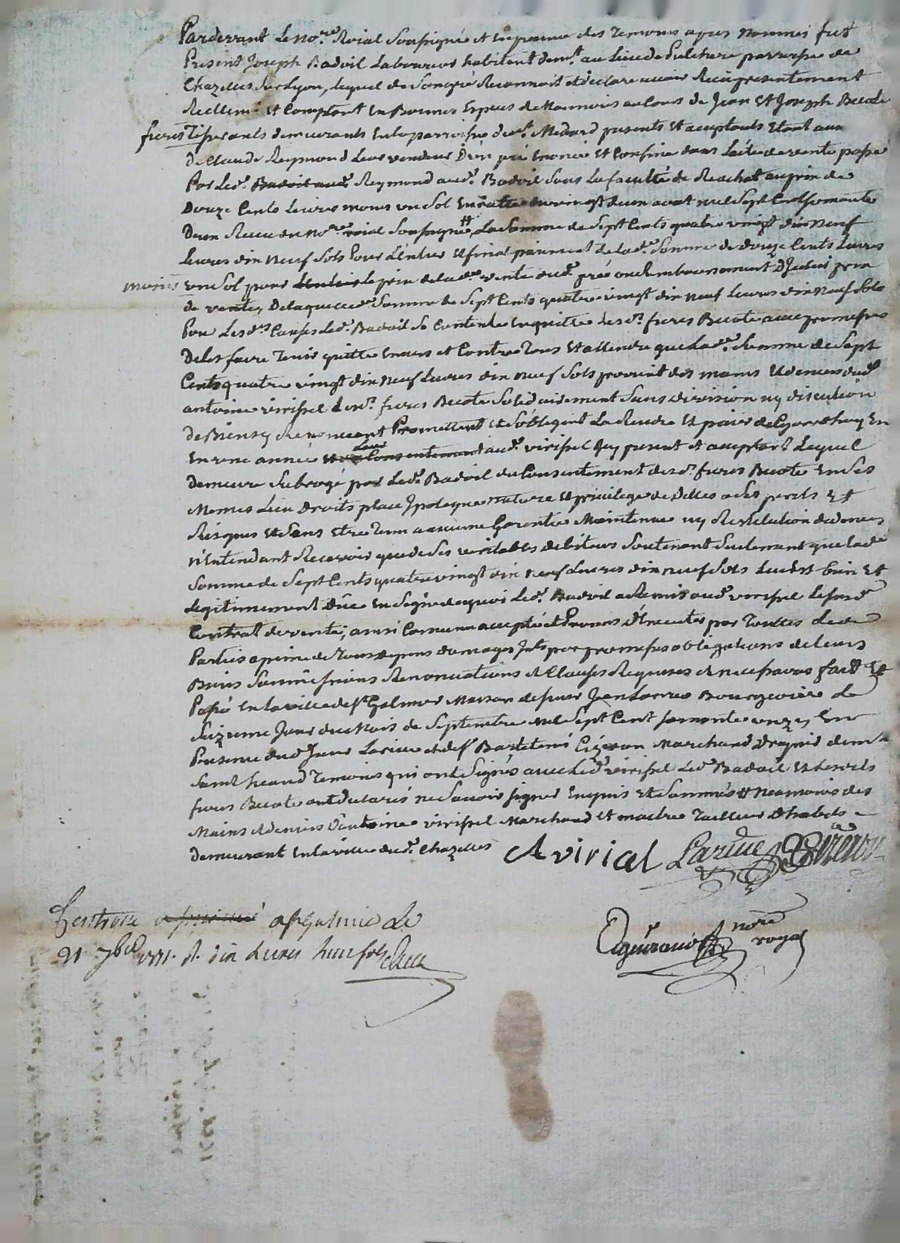 Pardevant le no.re Roial soussigné et en presence des temoins apres nommés fut
Present Joseph Badoil Laboureur habitent dem.t au Lieu de parroisse de
Chazelles sur Lyon, lequel de son gré Reconnoit et declare avoir Recu presentement
Reellem.t et Comptant en Bonnes Especes de Monnoies au Cours de Jean et Joseph Bucote
freres Tisserants demeurants en la parroisse de S.t Medard presents et acceptants Etant aux
de Claude Reymond Leur vendeur D'un pré Enoncé et Confiné dans l'acte de vente passé
Par Led. Reymond aud. Badoil sous la faculté de Rachat au prix de
Douze Cents Livres moins un sol En datte du vingt deux aout mil sept Cent soixante
Deux Recu du no.re roial soussigné, La somme de Sept Cents quatre vingt dix neuf
Livres dix neuf sols Pour L'entier et final paiement de lad. somme de douze Cents Livres
moins un sol pour le prix de lad. vente dud. pré ou Remboursement D'Jcelui prix
de vente, De laquelle somme de sept Cents quatre vingt dix neuf Livres dix neuf sols
Pour Les d. Causes Led. Badoil se Contente En quitte les d. freres Bucote avec promesse
De les faire tenir quitte Envers et Contre tous Et attendu que Lad. somme de sept
Cents quatre vingt dix neuf Livres dix neuf sols provient des mains et deniers dud.
antoine virissel Les d. freres Bucote Solidairement sans division ny discution
de Biens y Renonceant Promettent et s'obligent La Rendre Et paier
En une année aud. virissel icy present et acceptant Lequel
demeure subrogé par Led. Badoil du Consentement des d. freres Bucote En ses
Noms Lieu Droits place Ipoteque nature et privilege de Dettes a ses perils Et
Risques et sans Etre tenu a aucune Garentie Maintenue ny Restitution de deniers
n'Entendant Recevoir que de ses veritables debiteurs soutenant seulement que lad.
somme de sept Cents quatre vingt dix neuf Livres dix neuf sols Lui Est bien Et
Legitimement düe En signe de quoi Led. Badoil a Remis aud. virissel
Contrat de vente, ainsi Convenu accepté et Promis d'Executer par Toutes les d.
Parties a peine de tous depens domages Jnts par promesses obligations de leurs
Biens soumissions Renonciations et Clauses Requises et necessaires fait Et
Passé En la ville de S.t Galmier Maison de sieur Jean Larive Bourgeois Le
Jour du Mois de Septembre mil sept Cent soixante onze, En
Presence dud. Jean Larive et de S. Bartelemi Cizeron Marchand Drapié dem.t a
Saint heand Temoins qui ont signés avec Led. virissel Led. Badoil Et les d.
freres Bucote ont declarés ne savoir signer Enquis Et sommés
Mains et deniers D'antoine virissel Marchand et maitre Tailleur d'habits
demeurant En la ville dud. Chazelles
A virial Larive Cizeron
Controlé a S.t Galmier Le
21 7bre 1771. R. dix Livres huit sols
nore royal